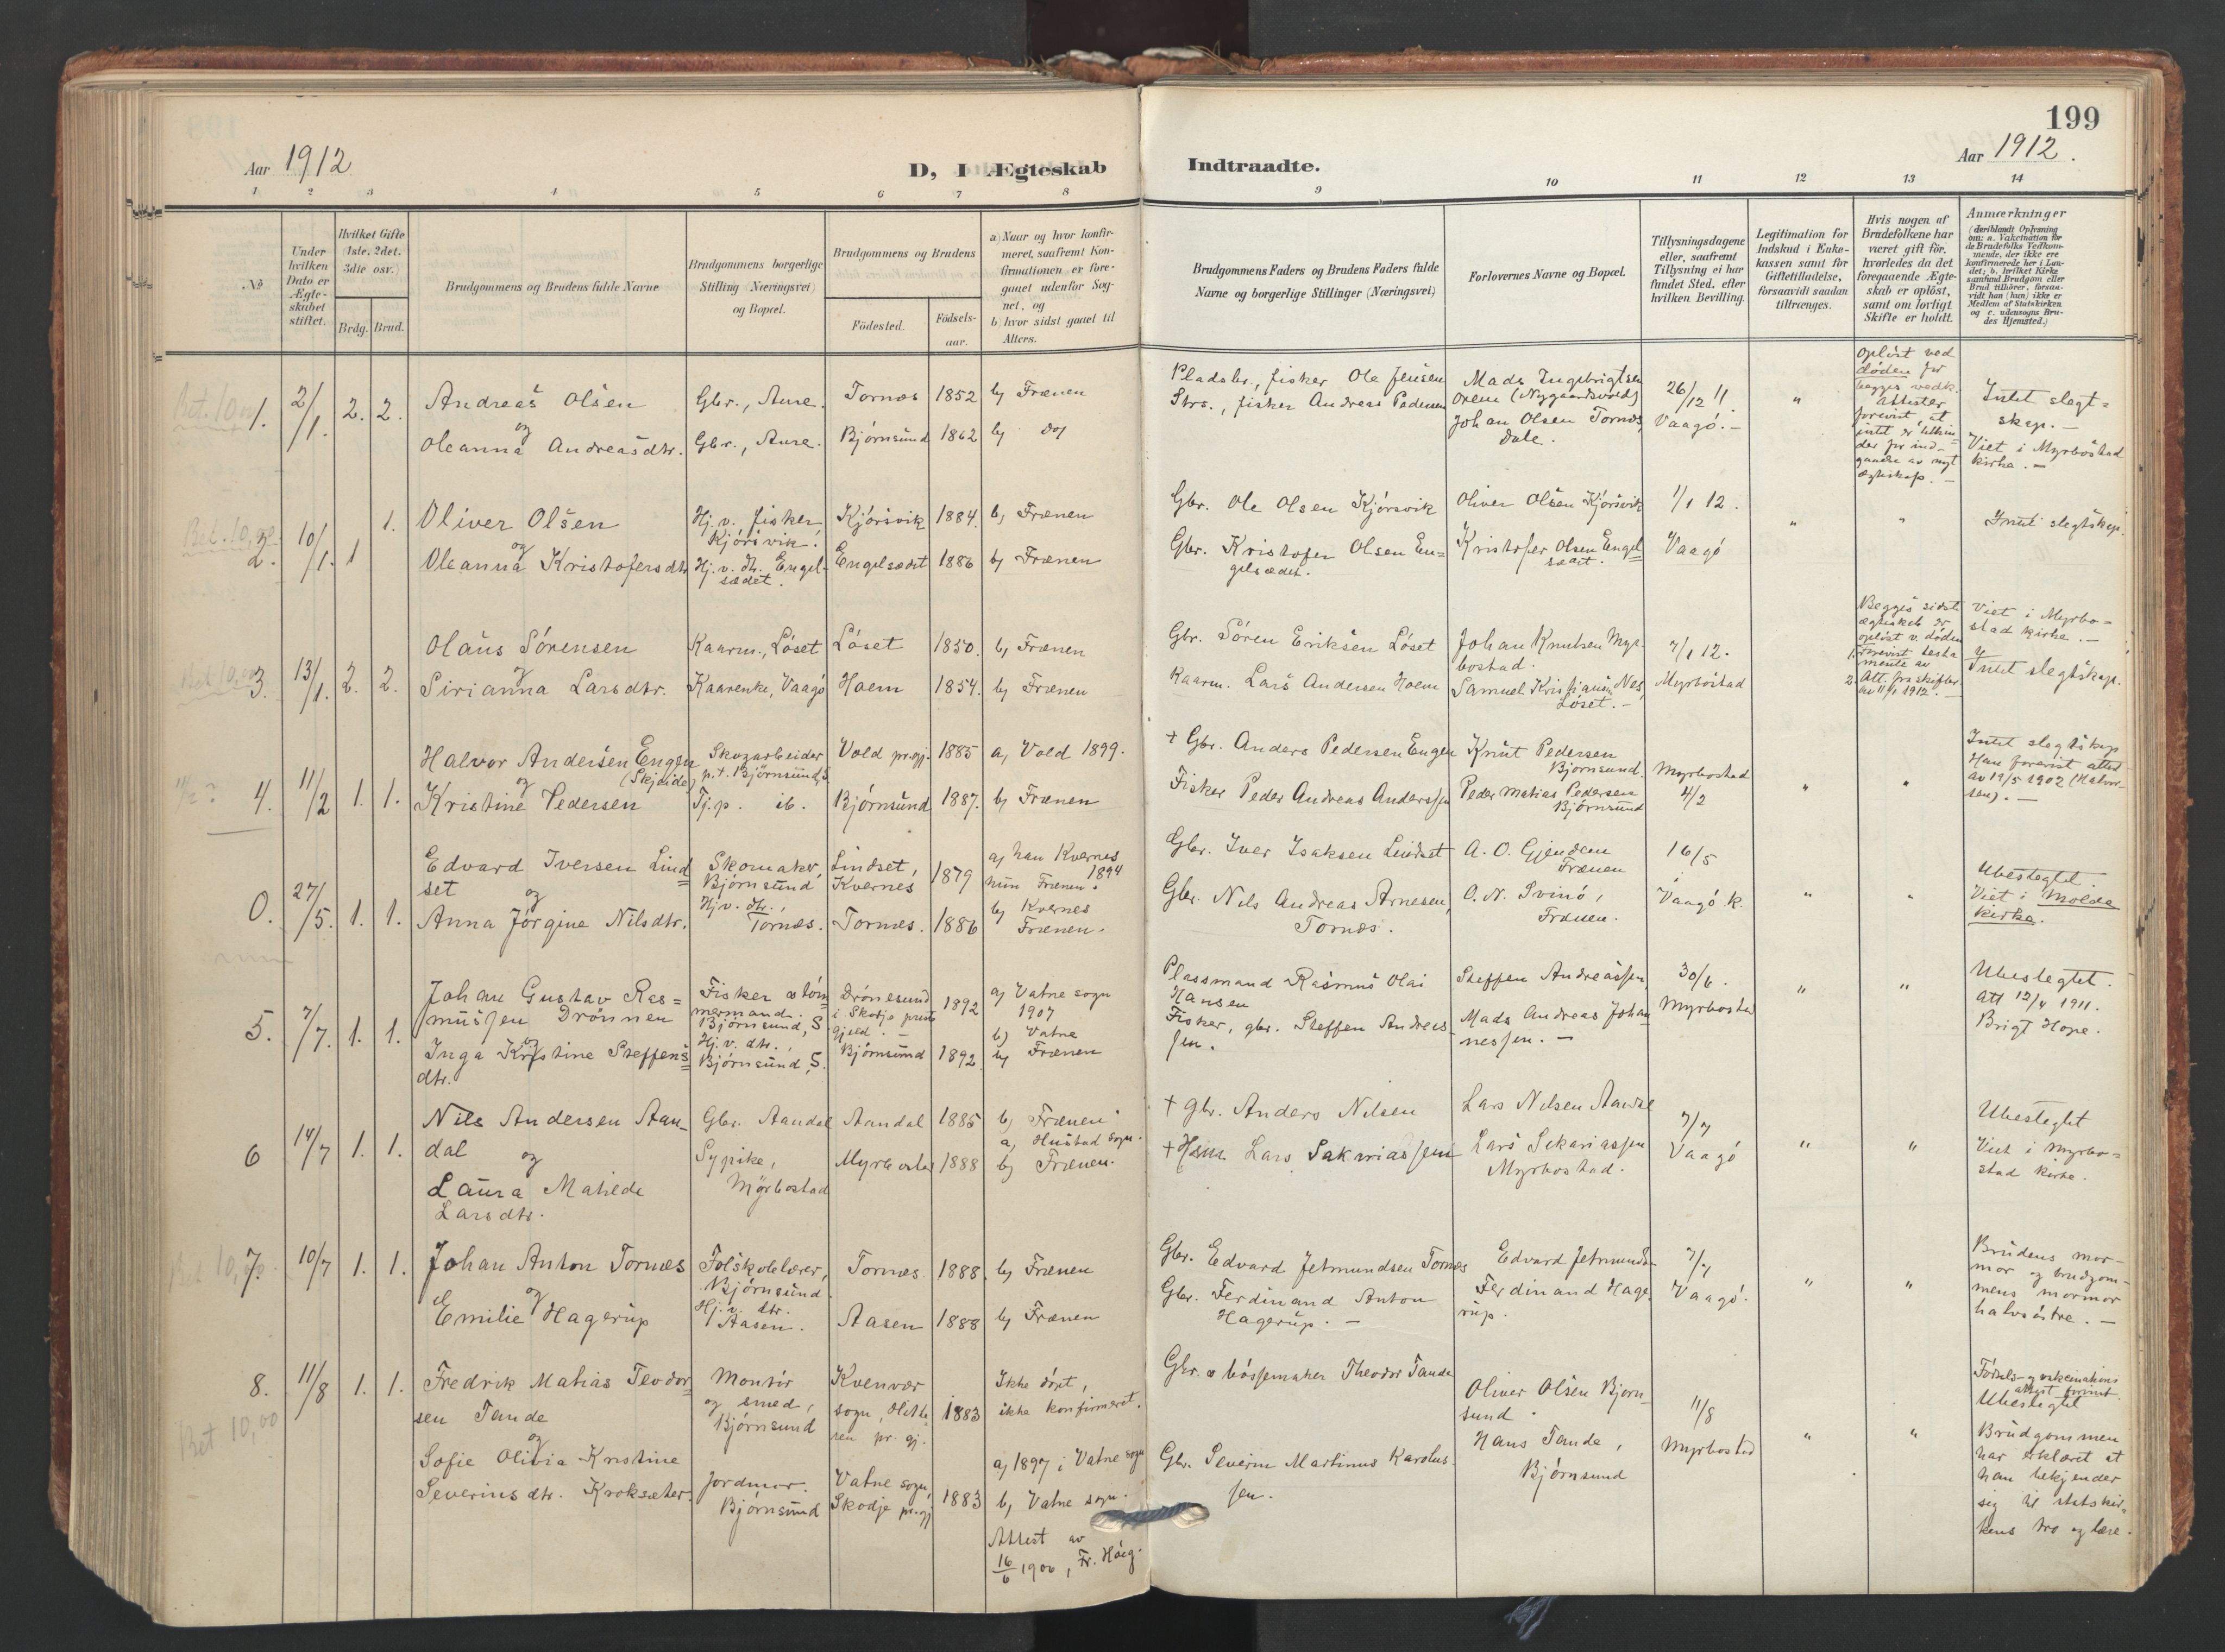 199
Aar 1912
D, I Ægteskab
Indtraadte.
Aar 1912.
1 2 3 4 5 6 7 8
9 10 11 12 13 14
No
Under hvilken Dato er Ægteskabet stiftet.
Hvilket Gifte (1ste, 2det, 3die osv.)
Brdg. Brud.
Brudgommens og Brudens fulde Navne
Brudgommens borgerlige Stilling (Næringsvei) og Bopæl.
Brudgommens og Brudens
Födested.
Födselsaar.
a) Naar og hvor konfirmeret, saafremt Konfirmationen er foregaaet udenfor Sognet, og
b) hvor sidst gaaet til Alters.
Brudgommens Faders og Brudens Faders fulde Navne og borgerlige Stillinger (Næringsvei)
Forlovernes Navne og Bopæl.
Tillysningsdagene eller, saafremt Tillysning ei har fundet Sted, efter hvilken Bevilling.
Legitimation for Indskud i Enkekassen samt for Giftetilladelse, forsaavidt saadan tiltrænges.
Hvis nogen af Brudefolkene har været gift för, hvorledes da det foregaaende Ægteskab er oplöst, samt om lovligt Skifte er holdt.
Anmærkninger
(deriblandt Oplysning om: a. Vakcination for de Brudefolks Vedkommende, der ikke ere konfirmerede her i Landet; b. hvilket Kirkesamfund Brudgom eller Brud tilhörer, forsaavidt han (hun) ikke er Medlem af Statskirken og c. udensogns Brudes Hjemsted.)
Bet. 10
1. 2/1. 2. 2.
Andreas Olsen
og
Oleanna Andreasdtr.
Gbr., Aure.
Gbr., Aure.
Tornes 1852 b) Frænen
Björnsund 1862 b) do)
Pladsbr., fisker Ole Jensen
Strs., fisker Andreas Pedersen
Mads Ingebrigtsen
Oren (Nygaardsvold)
Johan Olsen Tornes,
Dale.
26/12 11
Vaagö. –
"
Oplöst ved
döden for
begges vedk.
Attester
forevist, at
intet er til hin-
der for ind-
gaaelse av nyt
ægteskap. –
Intet slegt=
skap. –
Viet i Myrbostad
kirke. –
Bet. 10,00
2. 10/1. 1 1.
Oliver Olsen
og
Oleanna Kristofersdtr
Hj. v. fisker,
Kjörsvik.
Hj. v. dtr. Engel-
sædet.
Kjörsvik 1884. b) Frænen
Engelsædet 1886 b) Frænen
Gbr. Ole Olsen Kjörsvik
Gbr. Kristofer Olsen En=
gelsædet.
Oliver Olsen Kjörsvik
Kristofer Olsen Engel=
sædet.
1/1 12.
Vaagö
" "
Intet slegtskap.
Bet 10,00
3. 13/1. 2. 2.
Olaus Sörensen
og
Sirianna Larsdtr.
Kaarm., Löset
Kaarenke, Vaagö
Löset 1850. b) Frænen
Hoem 1854. b) Frænen
Gbr. Sören Eriksen Löset
Kaarm. Lars Andersen Hoem
Johan Knutsen Myr-
bostad.
Samuel Kristiansen Nes,
Löset. –
7/1 12.
Myrbostad
Begges sidste
ægteskab er
oplöst v. döden
1. Forevist testa
mente av
2. Att. fra skifter.
av 11/1 1912. –
Viet i Myrbo=
stad kirke. –
Intet slegtskap.
4. 11/2 1. 1.
Halvor Andersen Engen
(Skjeide)
og
Kristine Pedersen
Skogarbeider
p.t. Björnsund, S.
Tj. p. ib.
Vold prgj. 1885 a) Vold 1899.
Björnsund 1887. b) Frænen
+ Gbr. Anders Pedersen Engen
Fisker Peder Andreas Anderssen
Knut Pedersen
Björnsund.
Peder Matias Pedersen
Björnsund
Myrbostad
4/2
" "
Intet slegtskap
Han forevist attest
av 19/5 1902 (Halvor-
sen). –
0. 27/5. 1. 1.
Edvard Iversen Lind=
set
og
Anna Jörgine Nilsdtr.
Skomaker,
Björnsund
Hj. v. dtr.,
Tornes.
Lindset,
Kvernes 1879
Tornes. 1886
a) han Kvernes
1894
hun Frænen.
b) Kvernes
Frænen.
Gbr. Iver Isaksen Lindset
Gbr. Nils Andreas Arnesen,
Tornes.
A. O. Gjendem
Frænen
O. N. Svinö,
Frænen.
16/5
Vaagö k.
" "
Ubeslegtet.
Viet i Molde
kirke.
5. 7/7. 1. 1.
Johan Gustav Ras=
mussen Drönnen
og
Inga Kristine Steffens=
dtr.
Fisker & töm=
mermand.
Björnsund, S
Hj. v. dtr.,
Björnsund, S.
Drönesund
i Skodje preste
gjeld. – 1892
Björnsund 1892
a) Vatne sogn
1907
b) Vatne
b) Frænen
Plassmand Rasmus Olai
Hansen
Fisker, gbr. Steffen Andreas-
sen.
Steffen Andreassen
Mads Andreas Johan
nessen. –
30/6.
Myrbostad
" "
Ubeslegtet.
Att 12/4 1911.
Brigt Hope.
6 14/7 1. 1.
Nils Andersen Aan-
dal
og
Laura Matilde
Larsdtr.
Gbr. Aandal
Sypike,
Myrbostad
Aandal 1885
Myrbostad 1888
b) Frænen
a) Hustad sogn.
b) Frænen.
+ gbr. Anders Nilsen
+ Hsm. Lars Sakariassen
Lars Nilsen Aandal
Lars Sekariassen
Myrbostad.
7/7
Vaagö
" "
Ubeslegtet
Viet i Myrbo=
stad kirke.
Bet 10,00.
7. 10/7 1. 1.
Johan Anton Tornes
og
Emilie Hagerup
Folskolelærer,
Björnsund.
Hj. v. dtr.
Aasen.
Tornes 1888. b) Frænen
Aasen 1888 b) Frænen
Gbr. Edvard Jetmundsen Tornes
Gbr. Ferdinand Anton
Hagerup. –
Edvard Jetmundsen
Ferdinand Hage-
rup.
7/7
Vaagö.
" "
Brudens mor-
mor og brudgom-
mens mormor
halvsöstre. –
8. 11/8 1. 1.
Bet 10,00
Fredrik Matias Teodor-
sen Tande
og
Sofie Olivia Kristine
Severinsdtr. Kroksæter
Montör
og smed,
Björnsund
Jordmor.
Björnsund
Kvenvær
sogn, Hitte
ren pr. gj. 1883
Vatne sogn,
Skodje pr.gj 1883
Ikke döpt,
ikke konfirmeret.
a) 1897 i Vatne sogn
b) Vatne sogn.
Attest av
16/6 1906, Fr. Höeg.
Gbr. & bössemaker Theodor Tande
Gbr. Severin Martinus Karolus-
sen.
Oliver Olsen Björn-
sund.
Hans Tande,
Björnsund
11/8
Myrbostad
" "
Födsels- og vakcinations
attest forevist.
Ubeslegtet
Brudgommen
har erklæret at
han bekjender
sig til statskir-
kens tro og lære.